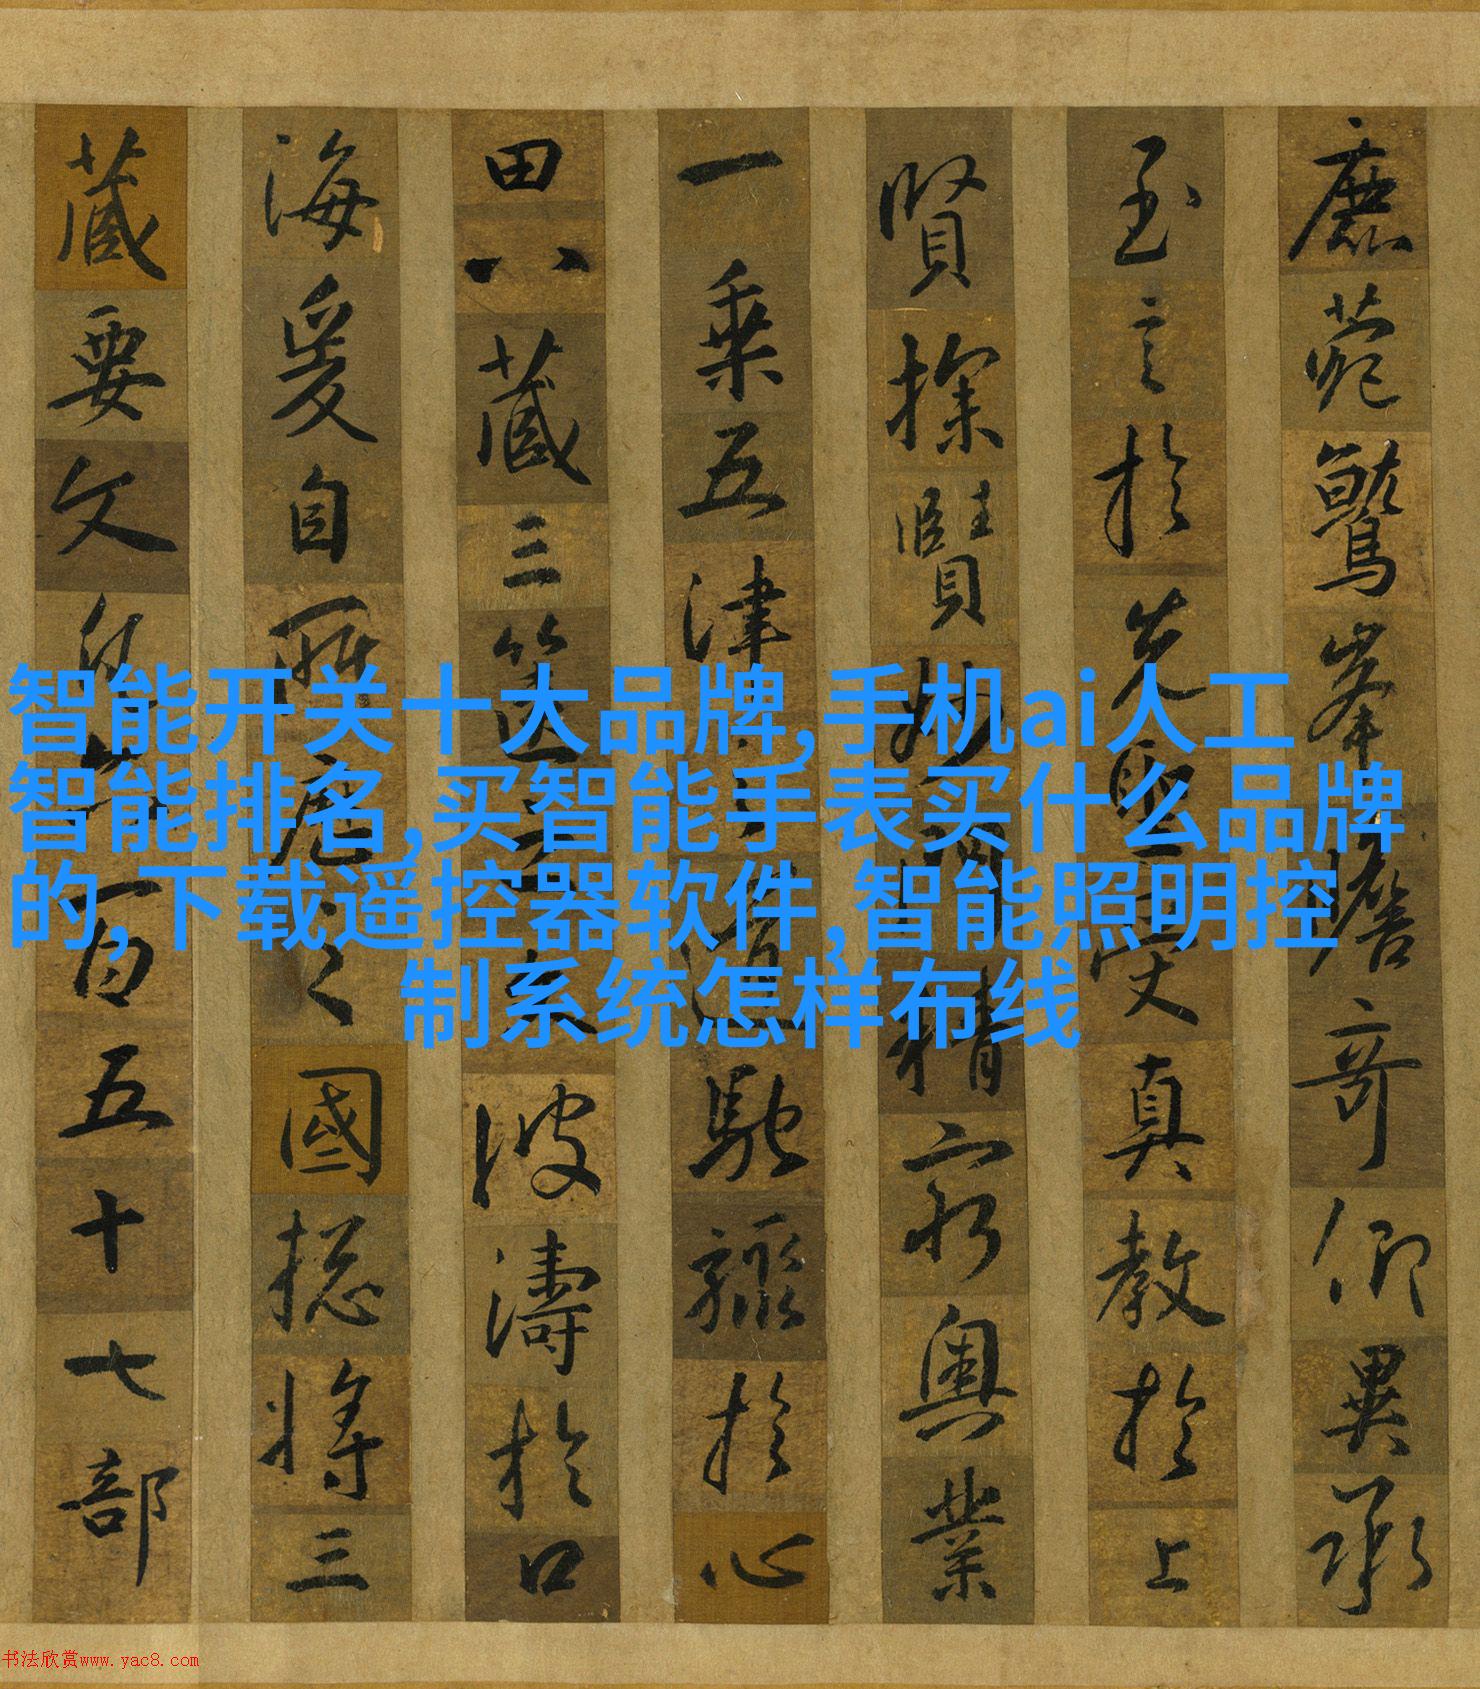 鹿苑鷲峯瞻奇仰異承
至言於先聖受真教於上
賢探賾妙門精窮奥業
一乘五律之道馳驟於心
田八藏三篋之文波濤於口
海爰自所歷之國摠將三
藏要文凡六百五十七部
智能开关十大品牌,手机ai人工
智能排名,买智能手表买什么品牌
的,下载遥控器软件,智能照明控
制系统怎样布线
书法欣赏www.yac8.com